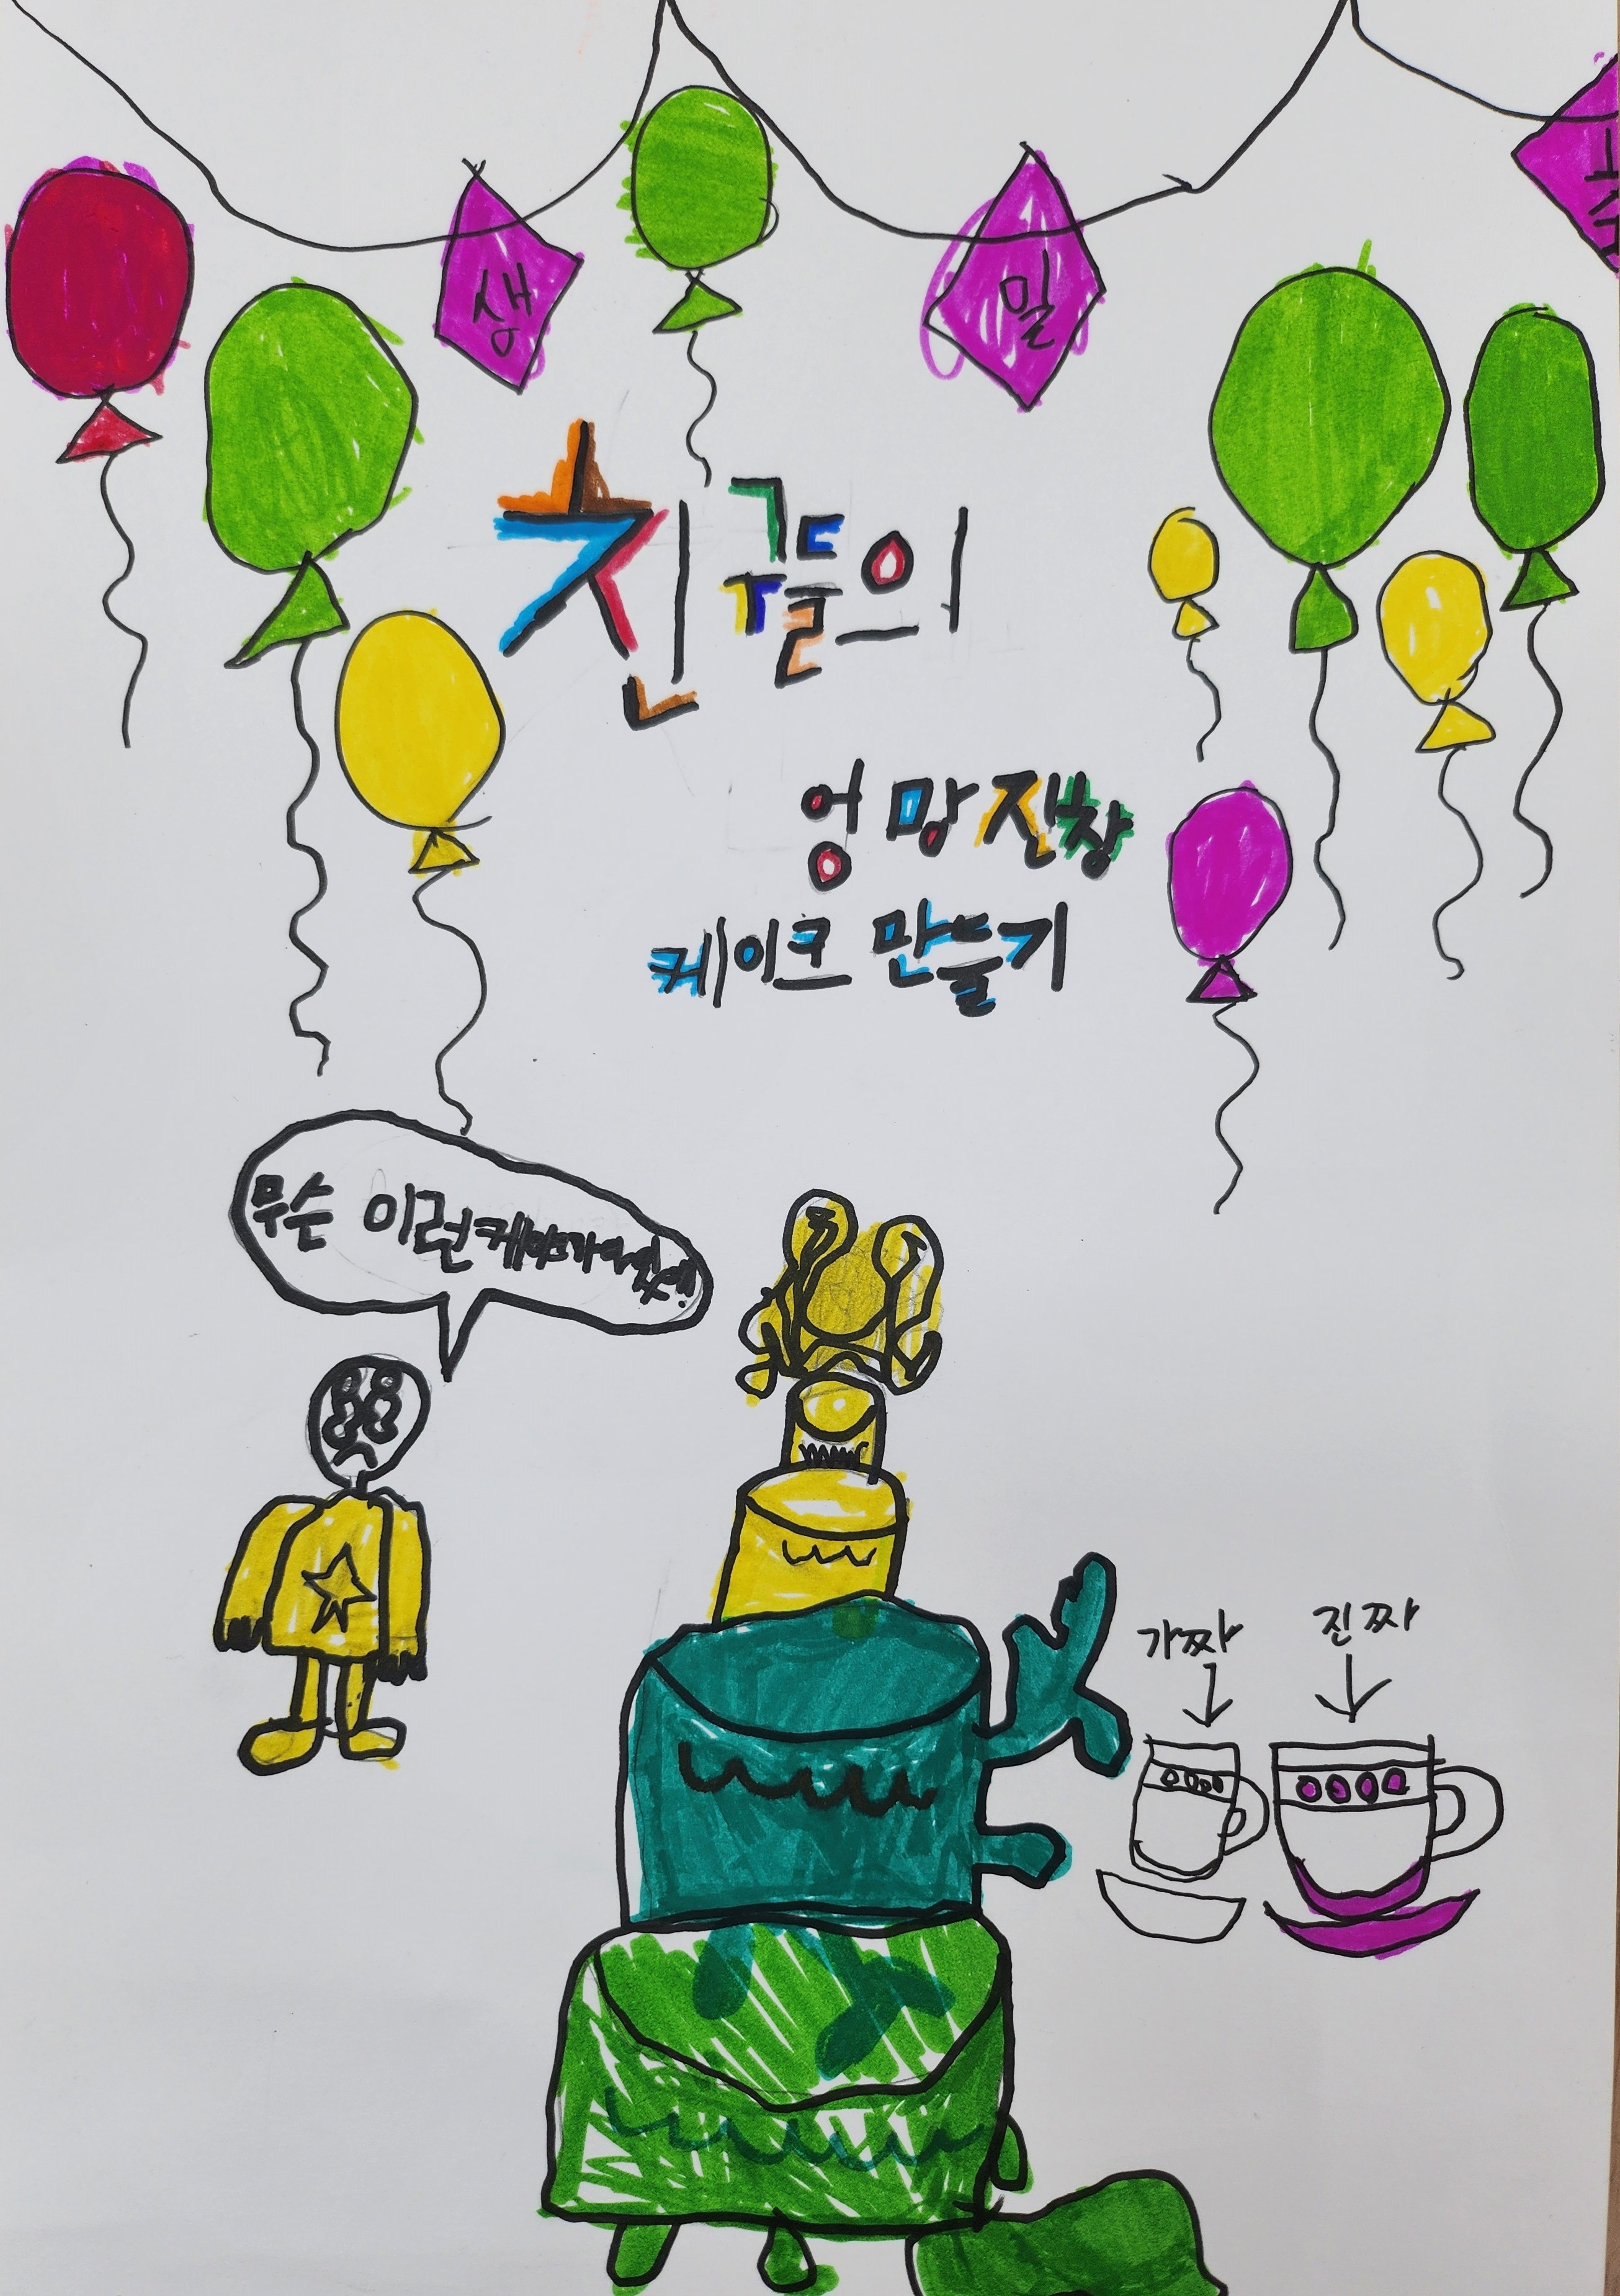 생 일
친구들의
엉망진창
케이크 만들기
무슨 이런케이크가
가짜 진짜